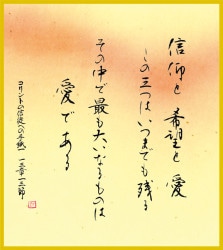 信仰と希望と愛
この三つはいつまでも残る
その中で最も大いなるものは
愛である
コリントの信徒への手紙一 十三章十三節